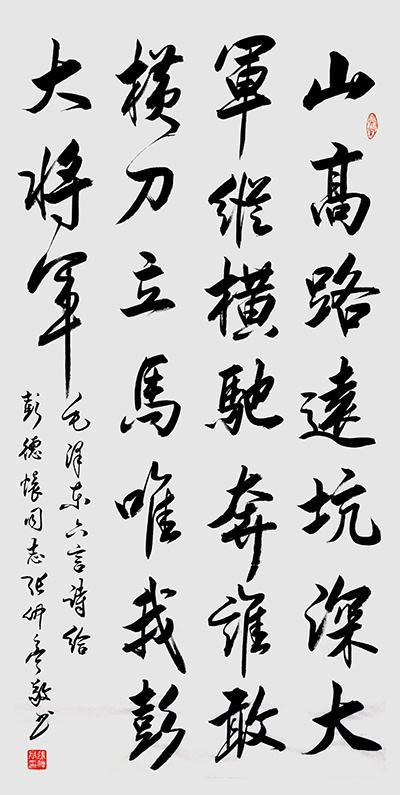 山高路遠坑深大
軍縱横馳奔誰敢
横刀立馬唯我彭
大将軍
毛泽东六言詩给
彭德懷同志张敬书